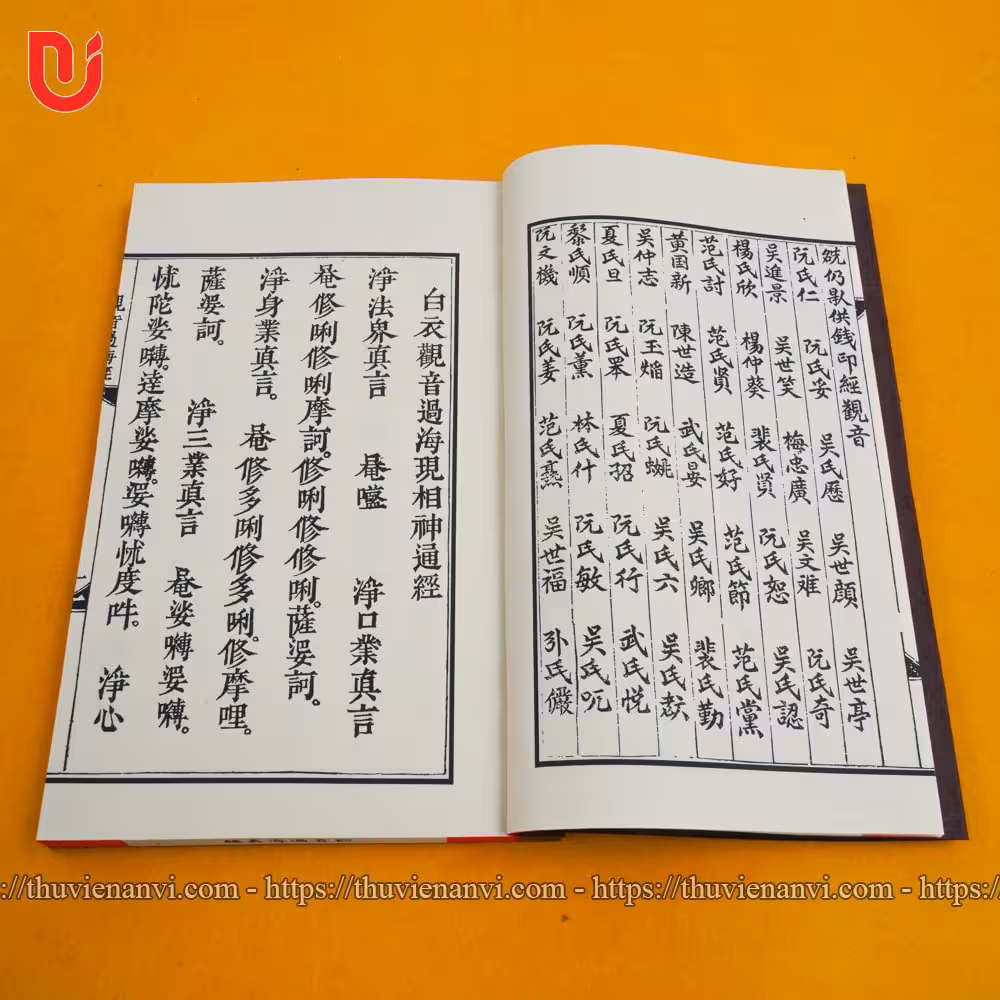 供錢印經觀音
阮氏仁 阮氏妥 吳氏歷 吳世顔 吳世亭
吳進景 吳世笑 梅忠廣 吳文难 阮氏奇
楊氏欣 楊仲葵 裴氏賞 阮氏恕 吳氏認
范氏討 范氏貴 范氏好 范氏節 范氏黨
黄国新 陳世造 武氏晏 吳氏鄉 裴氏勤
吳仲志 阮玉焰 阮氏 吳氏六 吳氏
夏氏旦 阮氏罘 夏氏招 阮氏行 武氏悦
黎氏順 阮氏薰 林氏什 阮氏敏 吳氏呃
阮文機 阮氏姜 范氏 吳世福 氏儼
白衣觀音過海現相神通經
淨法界真言 唵㘕 淨口業真言
唵修唎修唎摩訶。修唎修修唎。薩娑訶。
淨身業真言。 唵修多唎修多唎。修摩哩。
薩娑訶。 淨三業真言 唵娑嚩娑嚩。
怵陀娑嚩。達摩娑嚩。娑嚩怵度吽。 淨心
https://thuvienanvi.com - https://thuvienanvi.com - https://thuvienanvi.com - https